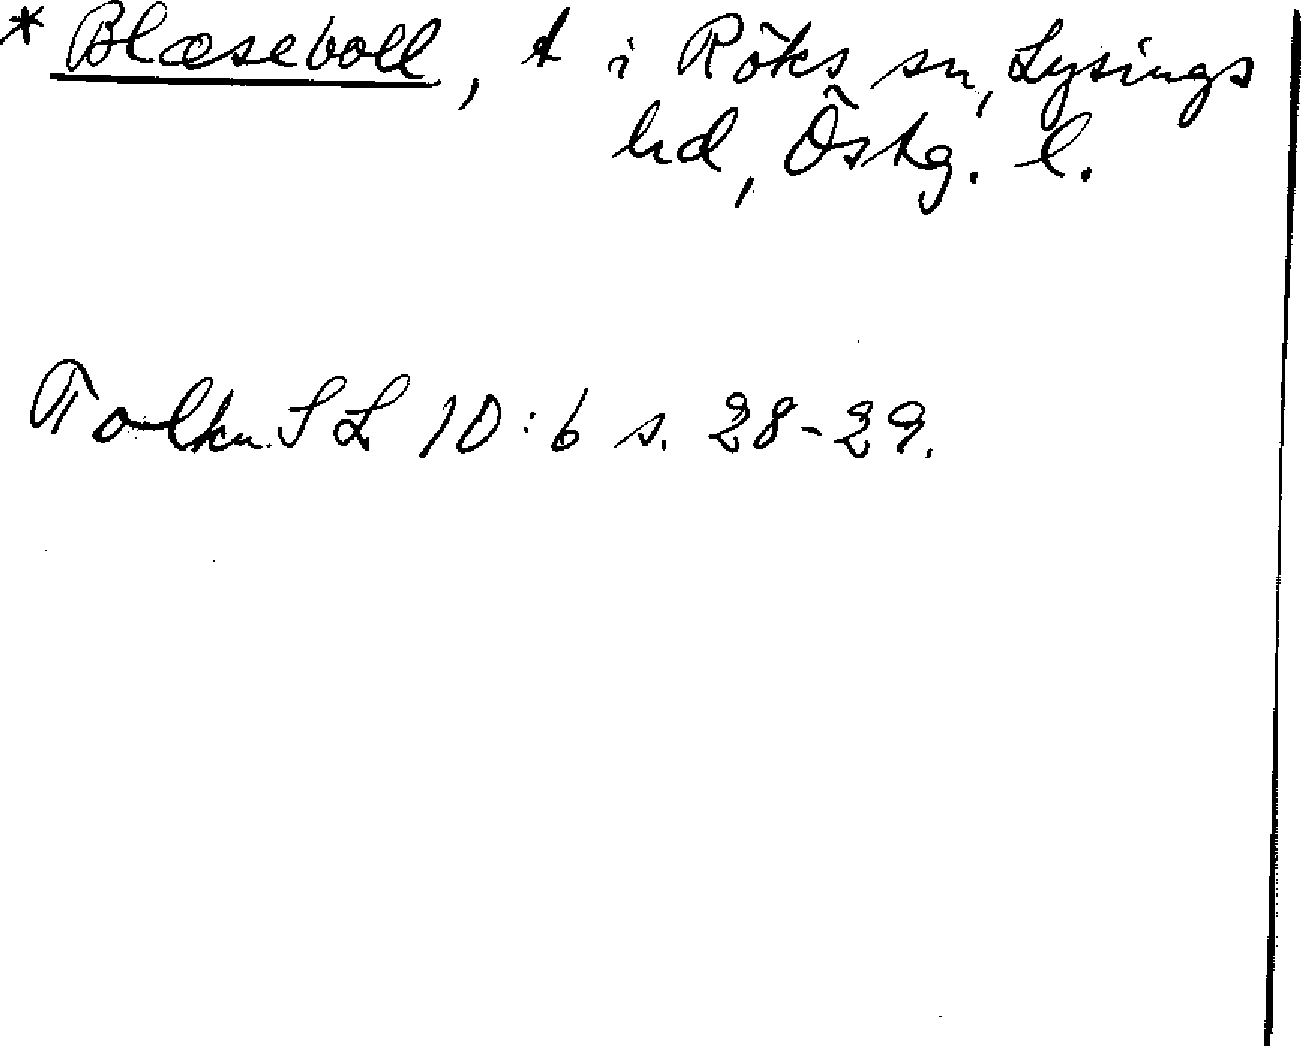 * Blæseboll, t i Röks sn, Lysings
hd, Östg. l.
Tolkn. SL 10:6 s. 28-29.